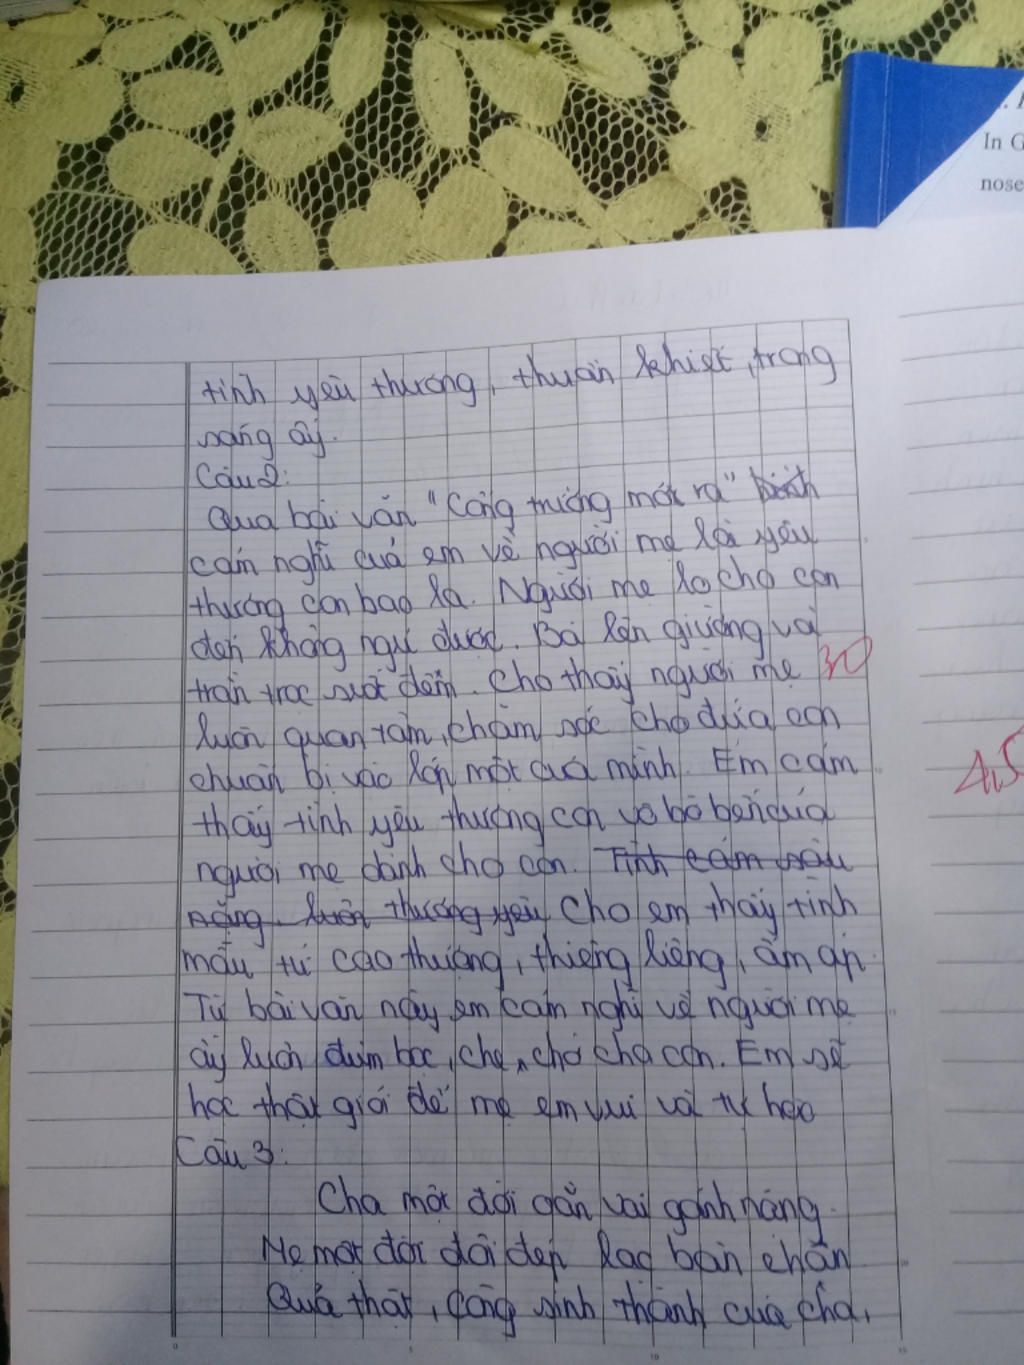 In G
nose
tình yêu thương, thuần khiết, trong
sáng ấy.
Câu 2:
Qua bài văn "Cổng trường mở ra"
cảm nghĩ của em về người mẹ là yêu
thương con bao la. Người mẹ lo cho con
đến không ngủ được. Bà lên giường và
trằn trọc suốt đêm. Cho thấy người mẹ
luôn quan tâm, chăm sóc cho đứa con
chuẩn bị vào lớp một của mình. Em cảm
thấy tình yêu thương con vô bờ bến của
người mẹ dành cho con. Tình cảm sâu
nặng. luôn thương yêu Cho em thấy tình
mẫu tử cao thượng, thiêng liêng, ấm áp.
Từ bài văn này em cảm nghĩ về người mẹ
ấy luôn đùm bọc, che, chở cho con. Em sẽ
học thật giỏi để mẹ em vui và tự hào
Câu 3:
Cha một đời oằn vai gánh nặng.
Mẹ một đời đôi dép lao bàn chân
Quả thật, công sinh thành của cha,
30
4,5